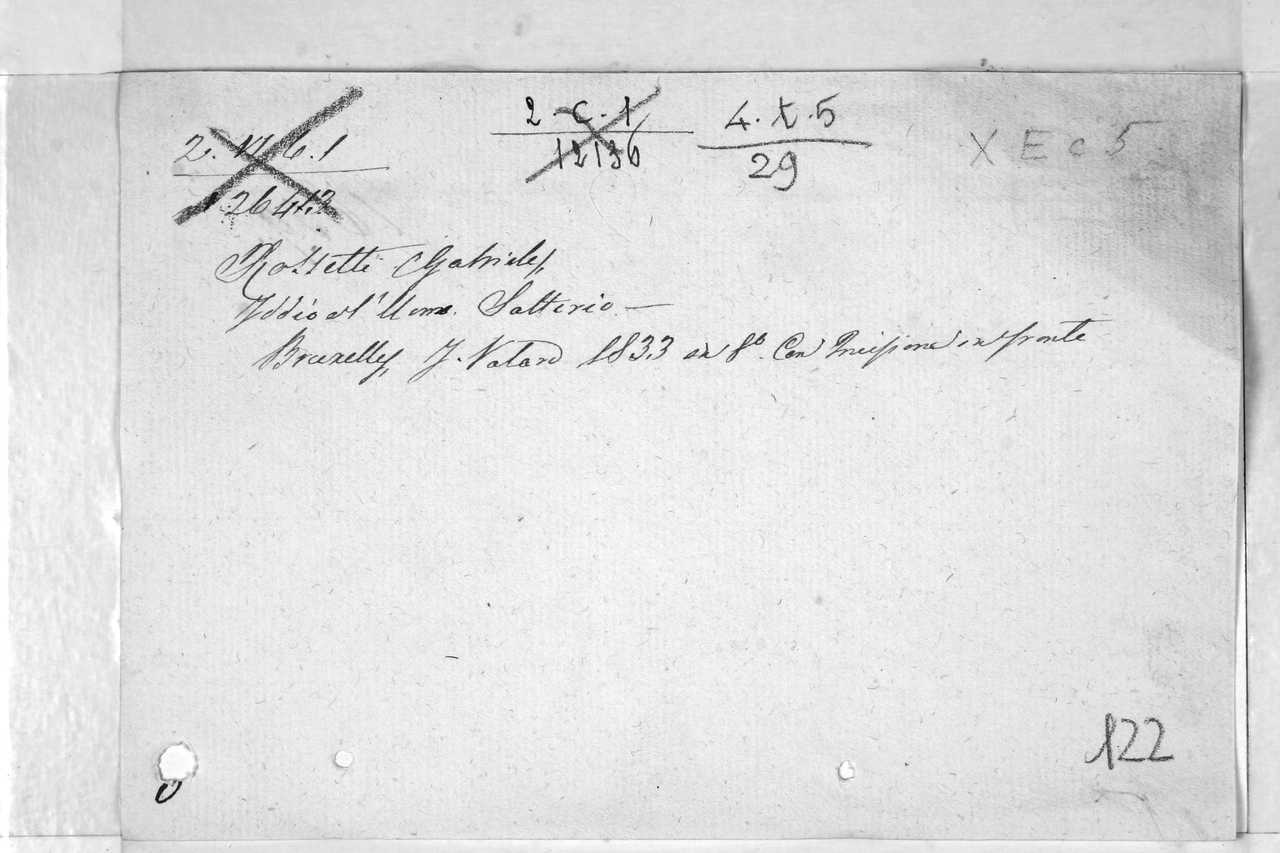 2. C. 1
12136
4. t. 5
29
X E c 5
Rossetti Gabriele,
Iddio e l'Uomo. Salterio —
Bruxelles, J. 1833 in 8º. Con Incisione in fronte
122